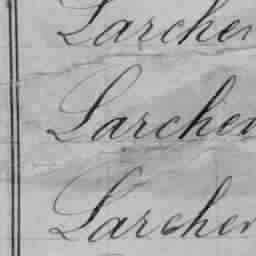 Larcher
Larcher
Larcher